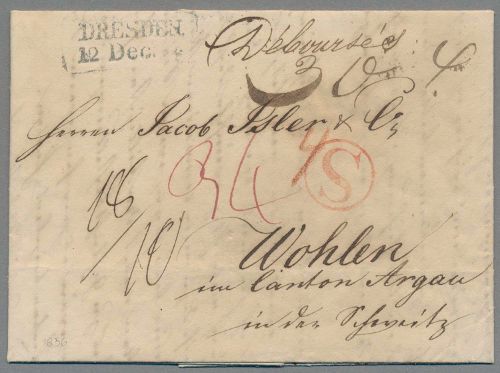 DRESDEN
12 Dec.
Débourse's
30 4
Herren Jacob Isler & Co
34
S
18/10
Wohlen
im Canton Argau
in der Schweitz
1836